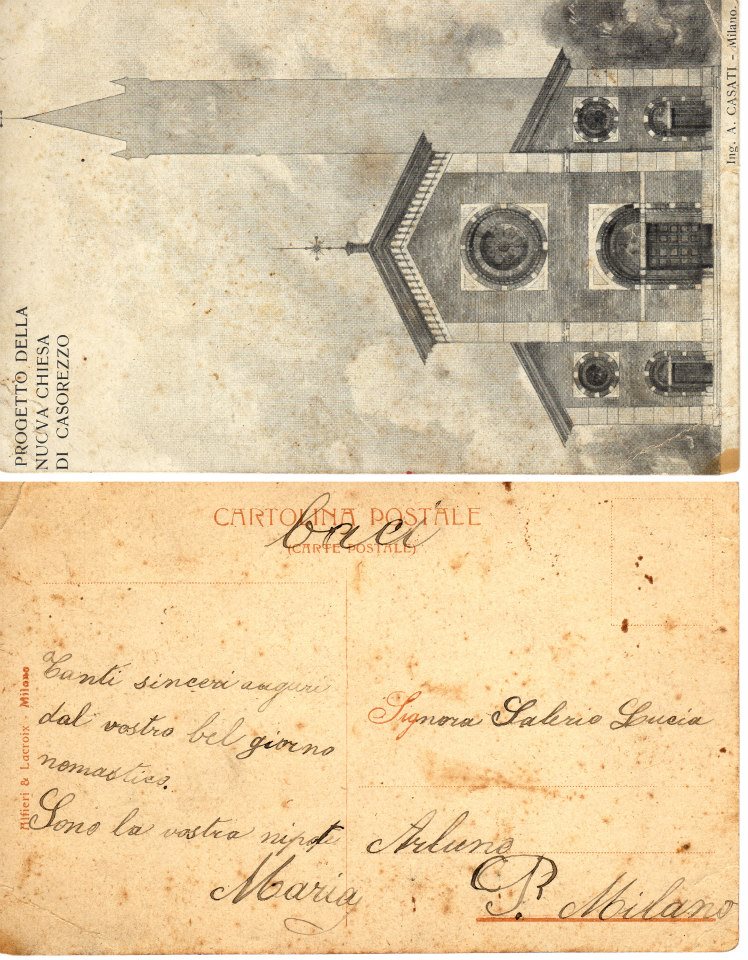 PROGETTO DELLA
NUOVA CHIESA
DI CASOREZZO
Ing. A. CASATI - Milano.
CARTOLINA POSTALE
(CARTE POSTALE)
baci
Alfieri & Lacroix - Milano
Tanti sinceri auguri
dal vostro bel giorno
nomastico.
Sono la vostra nipote
Maria
Signora Salerio Lucia
Arluno
P. Milano